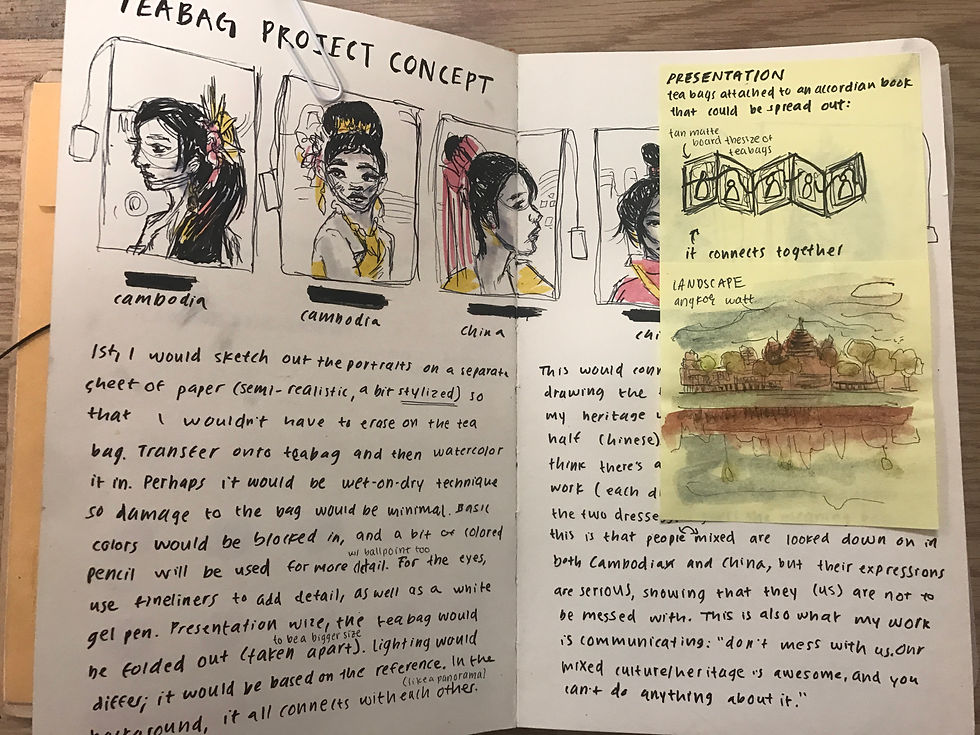 TEABAG PROJECT CONCEPT
cambodia
cambodia
china
chi
1st, I would sketch out the portraits on a separate
sheet of paper (semi-realistic, a bit stylized) so
that I wouldn't have to erase on the tea
bag. Transfer onto teabag and then watercolor
it in. Perhaps it would be wet-on-dry technique
so damage to the bag would be minimal. Basic
colors would be blocked in, and a bit of colored
w/ ballpoint too
pencil will be used for more detail. For the eyes,
use fineliners to add detail, as well as a white
gel pen. Presentation wize, the teabag would
to be a bigger size
be folded out (taken apart). lighting would
differ; it would be based on the reference. In the
(like a panorama)
background, it all connects with each other.
PRESENTATION
tea bags attached to an accordian book
that could be spread out:
tan matte
board the size of
teabags
it connects together
LANDSCAPE
angkor watt
This would conn
drawing the
my heritage
half (Chinese)
think there's a
work (each d
the two dresse
this is that people mixed are looked down on in
both Cambodian and China, but their expressions
are serious, showing that they (us) are not to
be messed with. This is also what my work
is communicating: "don't mess with us. Our
mixed culture/heritage is awesome, and you
can't do anything about it."